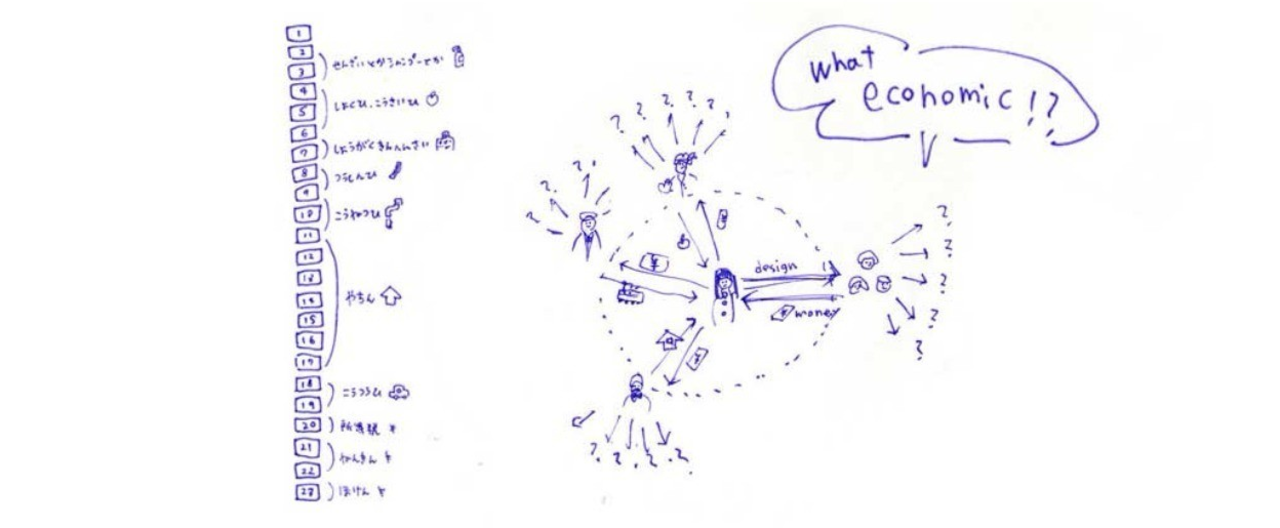 what
economic!?
1
2
3
せんざいとかシャンプーとか
4
5
しょくひ、こうさいひ
6
7
しょうがくきんへんさい
8
つうしんひ
9
10
こうねつひ
11
12
13
14
やちん
15
16
17
18
こうつうひ
19
20
所得税
21
ねんきん
22
23
ほけん
? ? ? ? ? ?
? ? ? ?
design
¥
money
? ? ? ? ?
? ? ? ?